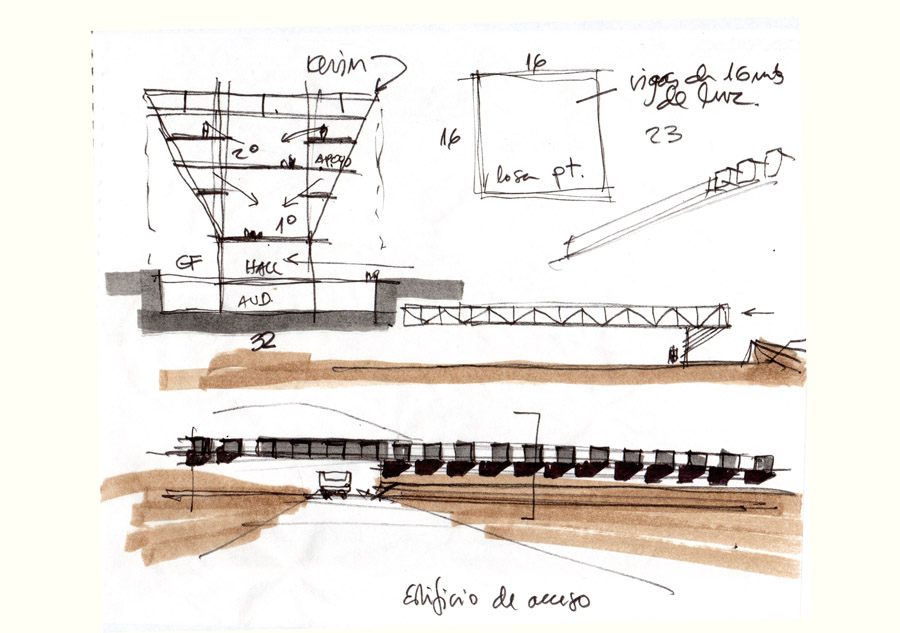 16
vigas de 16 mts
de luz.
16
23
2º
APOYO
losa pt.
1º
GF
HALL
AUD.
32
Edificio de acceso